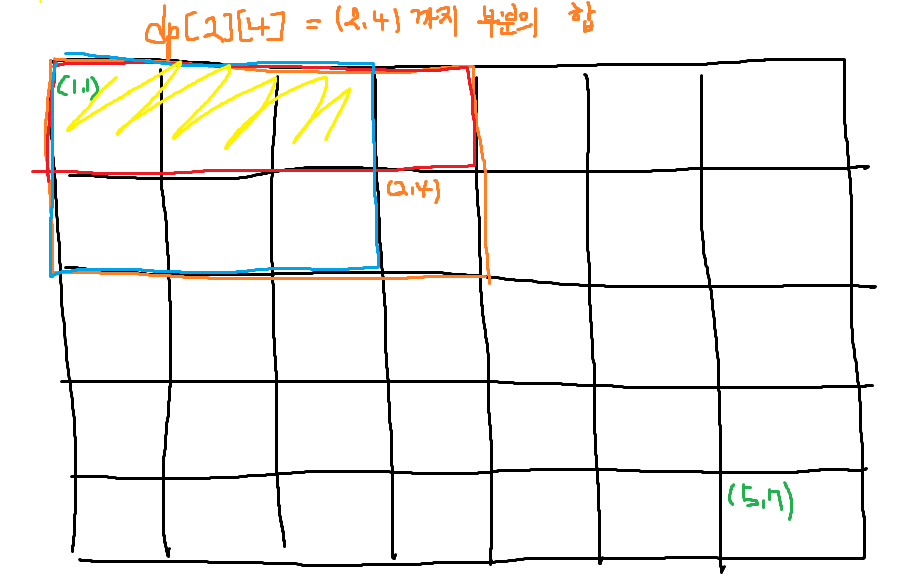 dp[2][4] = (2,4) 까지 부분의 합
(1,1)
(2,4)
(5,7)